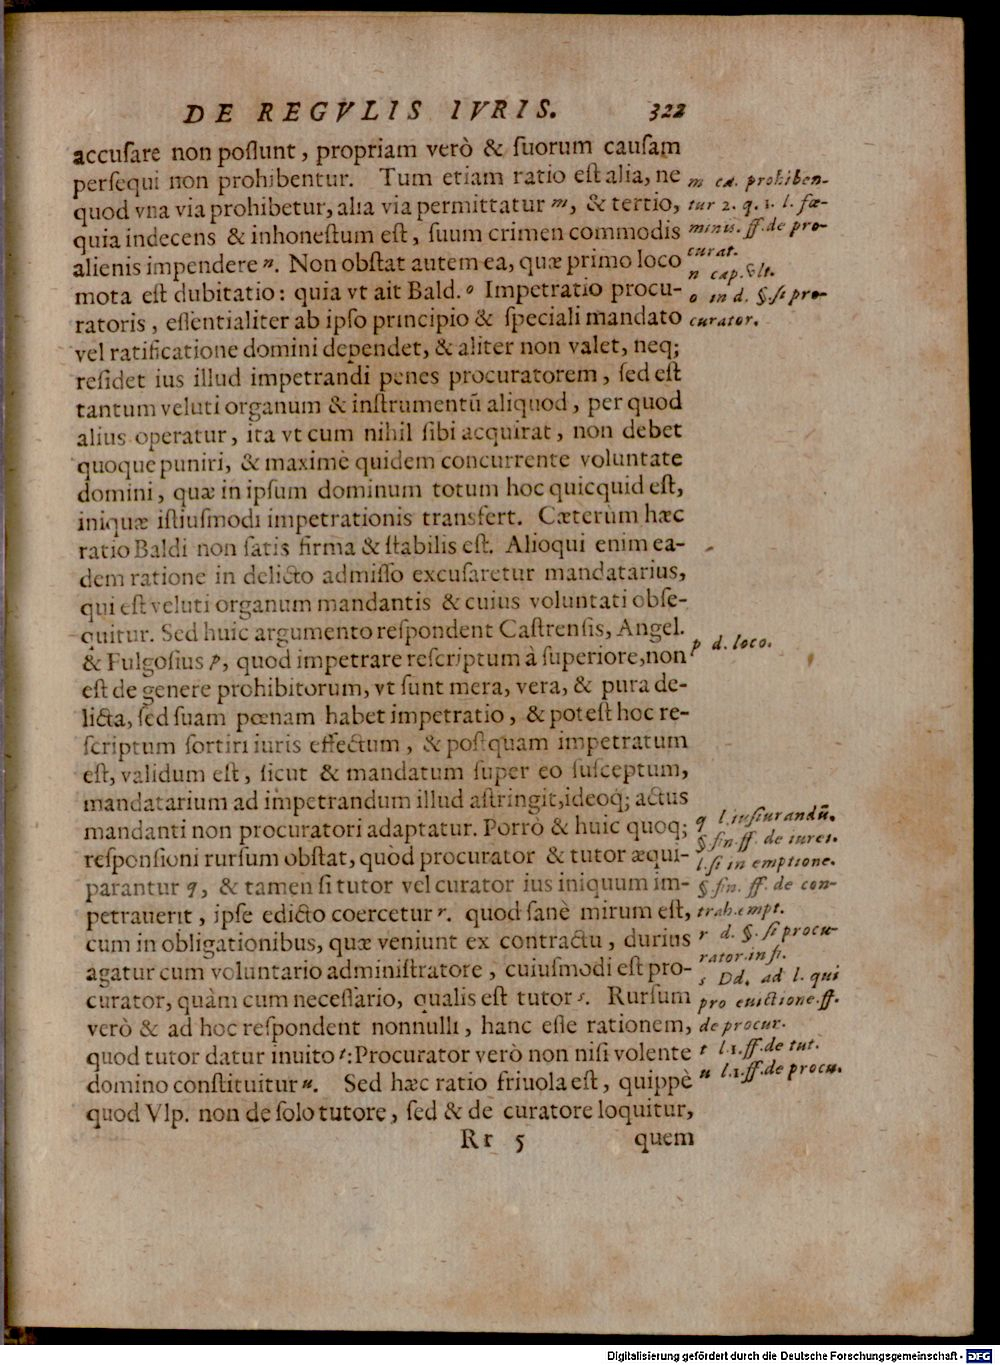 DE REGVLIS IVRIS. 322
accuſare non poſſunt, propriam verò & ſuorum cauſam
perſequi non prohibentur. Tum etiam ratio eſt alia, ne
quod vna via prohibetur, alia via permittatur m, & tertio,
quia indecens & inhoneſtum eſt, ſuum crimen commodis
alienis impendere n. Non obſtat autem ea, quæ primo loco
mota eſt dubitatio: quia vt ait Bald. o Impetratio procu-
ratoris, eſſentialiter ab ipſo principio & ſpeciali mandato
vel ratificatione domini dependet, & aliter non valet, neq;
reſidet ius illud impetrandi penes procuratorem, ſed eſt
tantum veluti organum & inſtrumentũ aliquod, per quod
alius operatur, ita vt cum nihil ſibi acquirat, non debet
quoque puniri, & maximè quidem concurrente voluntate
domini, quæ in ipſum dominum totum hoc quicquid eſt,
iniquæ iſtiuſmodi impetrationis transfert. Cæterùm hæc
ratio Baldi non ſatis firma & ſtabilis eſt. Alioqui enim ea-
dem ratione in delicto admiſſo excuſaretur mandatarius,
qui eſt veluti organum mandantis & cuius voluntati obſe-
quitur. Sed huic argumento reſpondent Caſtrenſis, Angel.
& Fulgoſius p, quod impetrare reſcriptum à ſuperiore, non
eſt de genere prohibitorum, vt ſunt mera, vera, & pura de-
licta, ſed ſuam pœnam habet impetratio, & poteſt hoc re-
ſcriptum ſortiri iuris effectum, & poſtquam impetratum
eſt, validum eſt, ſicut & mandatum ſuper eo ſuſceptum,
mandatarium ad impetrandum illud aſtringit, ideoq́; actus
mandanti non procuratori adaptatur. Porrò & huic quoq;
reſponſioni rurſum obſtat, quòd procurator & tutor æqui-
parantur q, & tamen ſi tutor vel curator ius iniquum im-
petrauerit, ipſe edicto coercetur r. quod ſanè mirum eſt,
cum in obligationibus, quæ veniunt ex contractu, durius
agatur cum voluntario adminiſtratore, cuiuſmodi eſt pro-
curator, quàm cum neceſſario, qualis eſt tutor s. Rurſum
verò & ad hoc reſpondent nonnulli, hanc eſſe rationem,
quod tutor datur inuito t: Procurator verò non niſi volente
domino conſtituitur u. Sed hæc ratio friuola eſt, quippè
quod Vlp. non de ſolo tutore, ſed & de curatore loquitur,
Rr 5 quem
m ca. prohiben-
tur 2. q. 1. l. fœ-
minis. ff. de pro-
curat.
n cap. vlt.
o in d. §. ſi pro-
curator.
p d. loco.
q l. iuſiurandũ.
§. fin. ff. de iurei.
l. ſi in emptione.
§ fin. ff. de con-
trah. empt.
r d. §. ſi procu-
rator. in fi.
s Dd. ad l. qui
pro euictione. ff.
de procur.
t l. 1. ff. de tut.
u l. 1. ff. de procu.
Digitalisierung gefördert durch die Deutsche Forschungsgemeinschaft - DFG